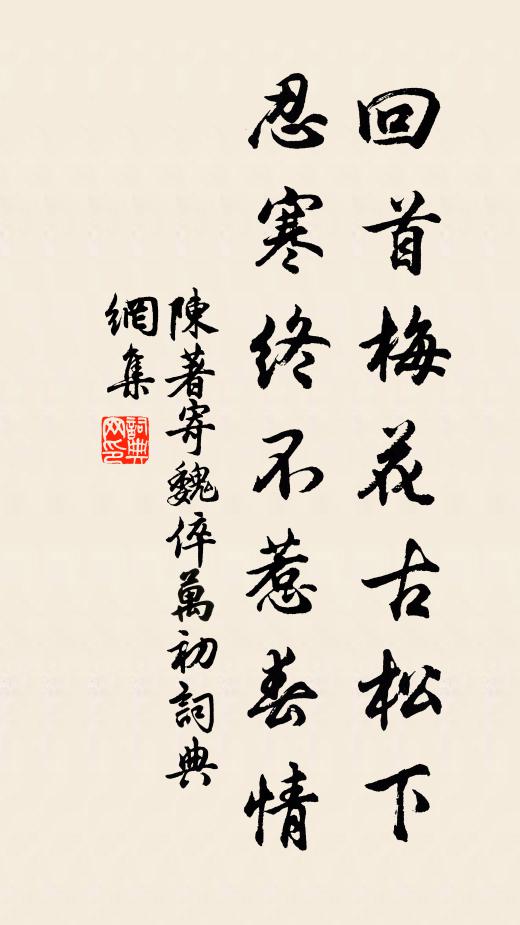 回首梅花古松下
忍寒終不惹春情
陳著寄魏倅萬初詞典
網集
詞典网印